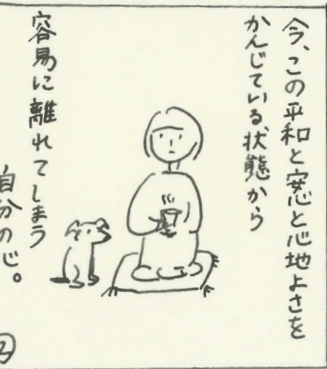 今、この平和と安心と心地よさを
かんじている状態から
容易に離れてしまう
自分の心。
②